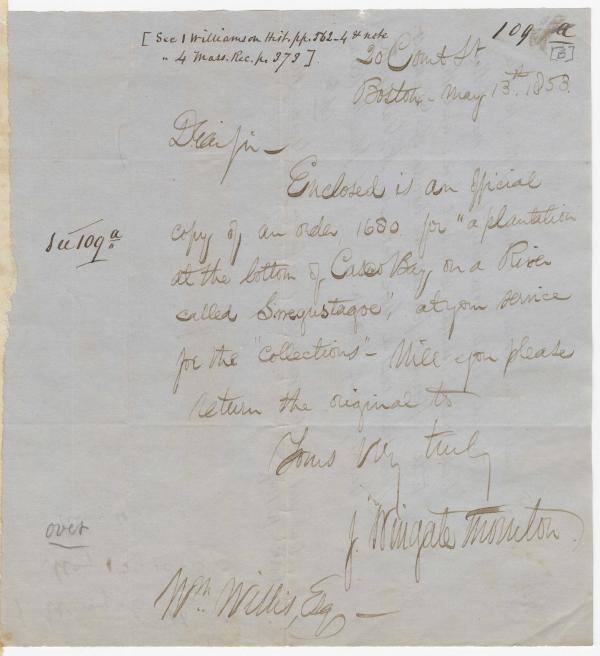 [See 1 Williamson Hist. pp. 562-4 & note
" 4 Mass. Rec. p. 373]
109 a
[B]
20 Court St.
Boston - May 13th. 1853.
Dear Sir -
Enclosed is an official
copy of an order 1680 for "a plantation
See 109 a
at the bottom of Casco Bay, on a River
called Swegustagoe", at your service
for the "Collections" - Will you please
return the original to
Yours very truly
J. Wingate Thornton.
over
Wm. Willis, Esq -